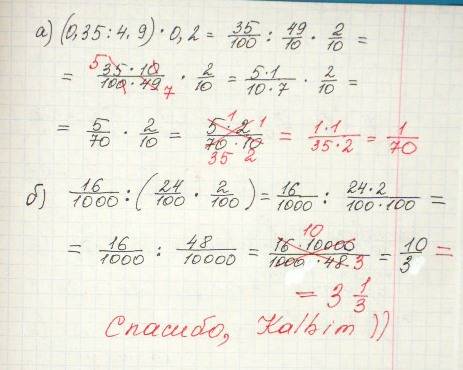 а) (0,35 : 4,9) · 0,2 = 35/100 : 49/10 · 2/10 =
= 35 · 10 / 100 · 49 · 2/10 = 5 · 1 / 10 · 7 · 2/10 =
= 5/70 · 2/10 = 5 · 2 / 70 · 10 = 1 · 1 / 35 · 2 = 1/70
б) 16/1000 : (24/100 · 2/100) = 16/1000 : 24 · 2 / 100 · 100 =
= 16/1000 : 48/10000 = 16 · 10000 / 1000 · 48 = 10/3 =
= 3 1/3
Спасибо, Kalbim ))